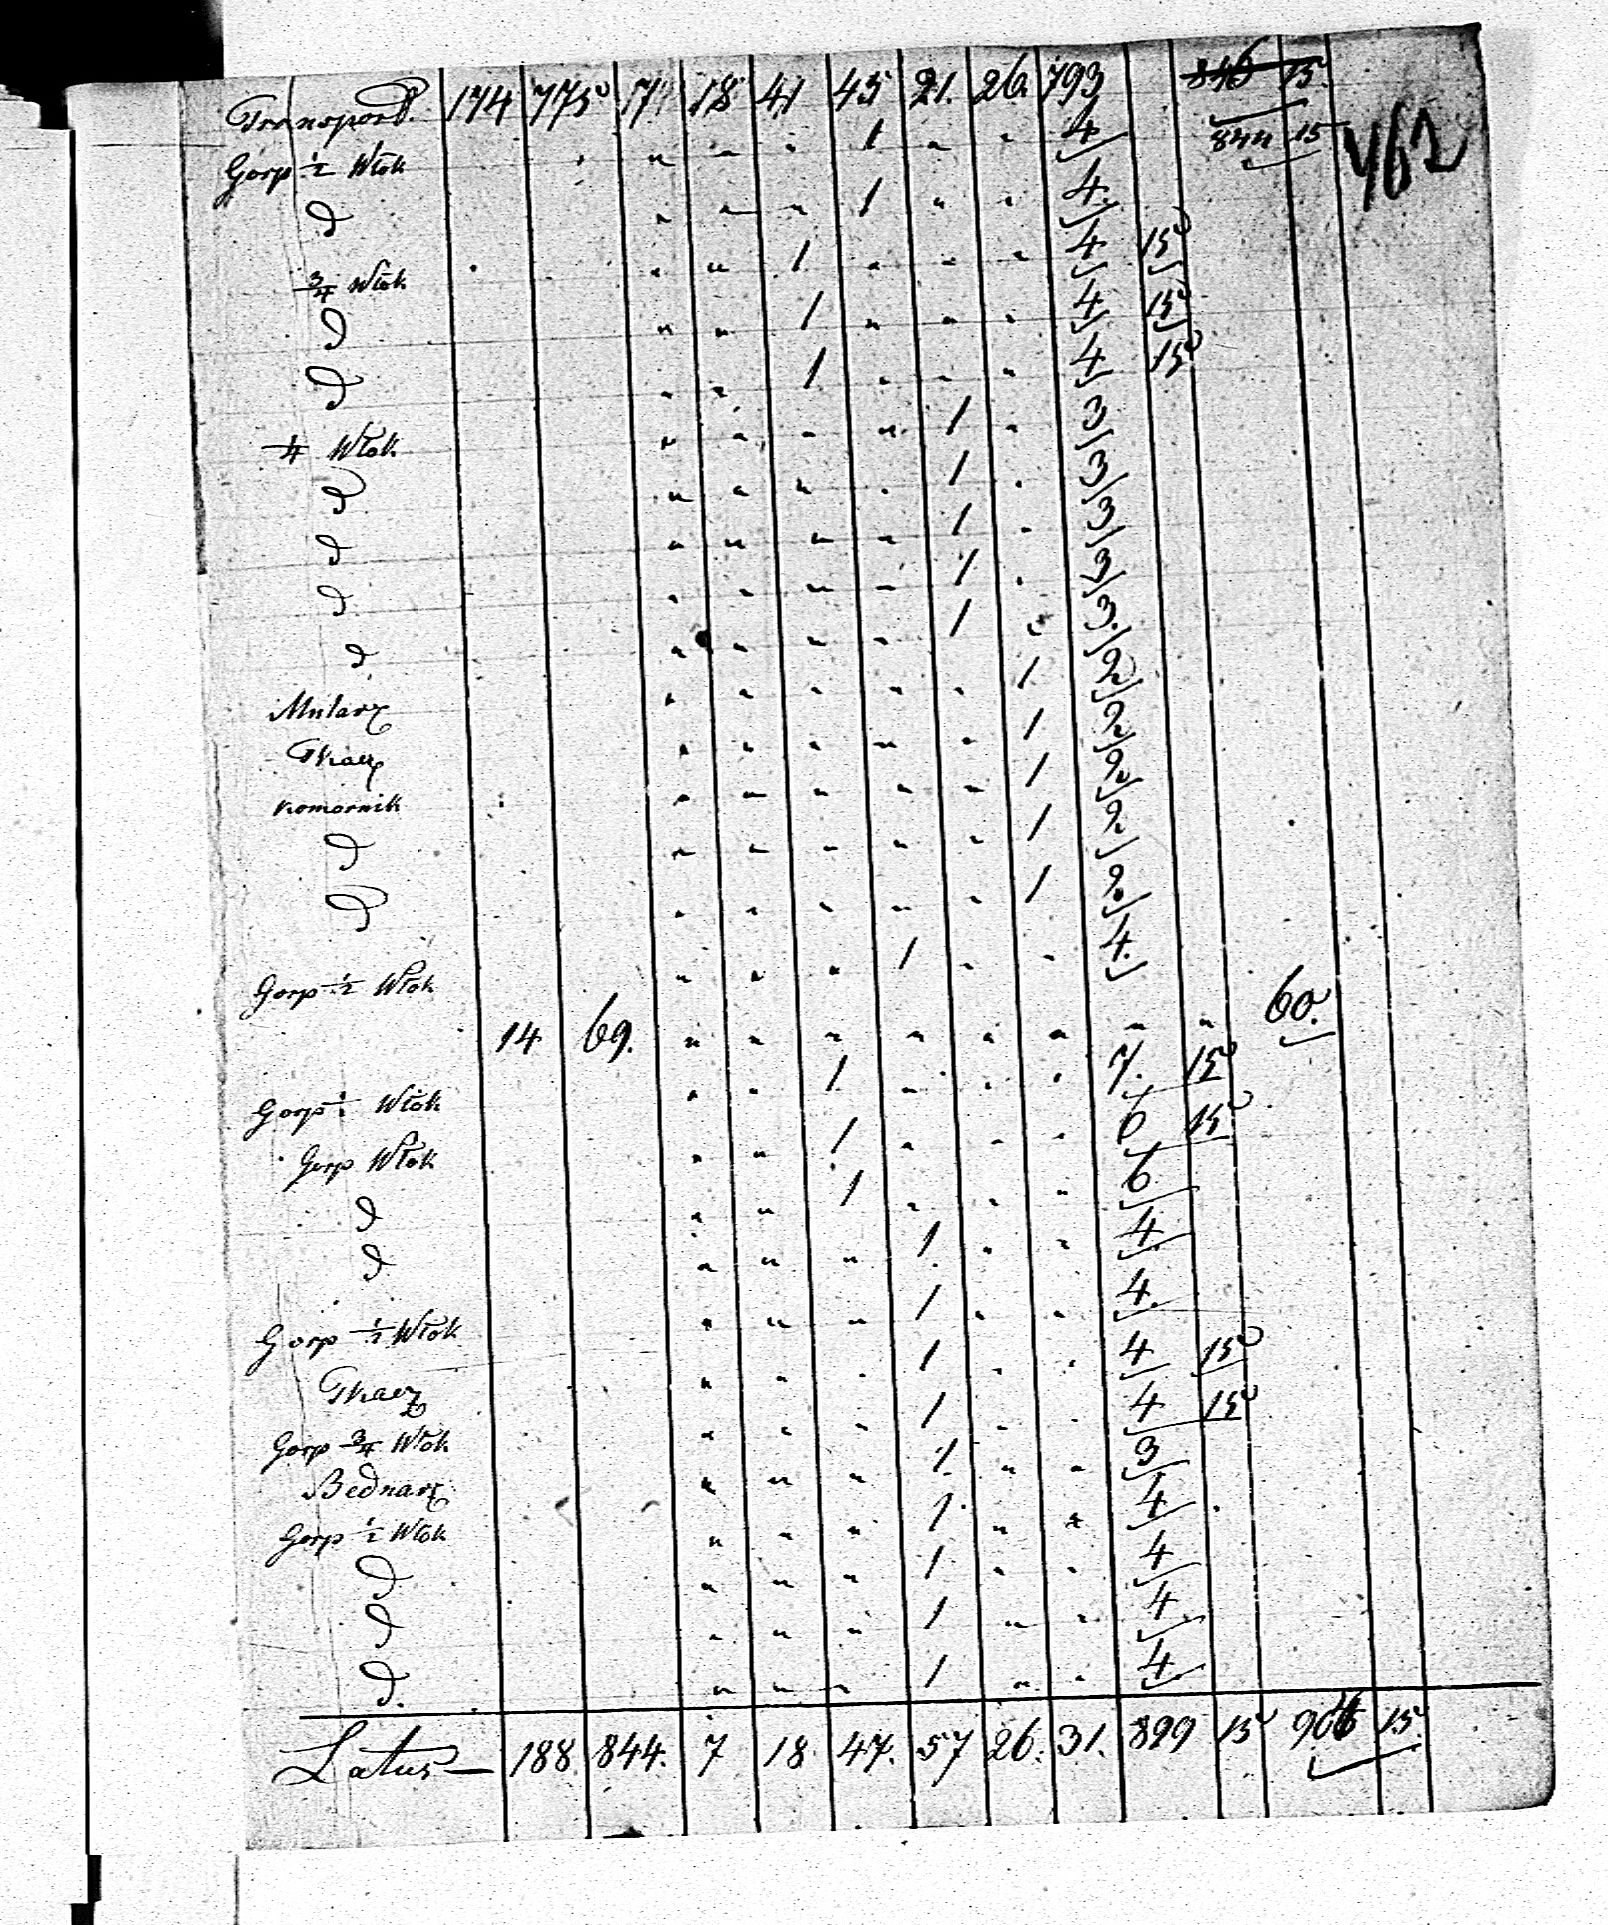 Transport. 174 775 7 18 41 45 21. 26. 793 846 15.
Gorp ½ Włok " " " 1 " " 4 844 15
462
d " " " 1 " " 4.
¾ Włok " " 1 " " " 4 15
d " " 1 " " " 4 15
d " " 1 " " " 4 15
¼ Włok " " " " 1 " 3
d " " " " 1 " 3
d " " " " 1 " 3
d " " " " 1 " 3
d " " " " 1 " 3.
Mularz " " " " " 1 2
Tkacz " " " " " 1 2
Komornik " " " " " 1 2
d " " " " " 1 2
d " " " " " 1 2
Gorp ½ Włok " " " 1 " " 4.
14 69. " " " " " " " " 60.
Gorp Włok " " 1 " " " 7. 15
Gorp Włok " " 1 " " " 6 15
d " " 1 " " " 6
d " " " 1 " " 4
Gorp ½ Włok " " " 1 " " 4.
Tkacz " " " 1 " " 4 15
Gorp ¾ Włok " " " 1 " " 4 15
Bednarz " " " 1. " " 3
Gorp ½ Włok " " " 1. " " 4
d " " " 1 " " 4
d " " " 1 " " 4.
d. " " " 1 " " 4.
Latus 188. 844. 7 18 47. 57 26. 31. 899 15 906 15